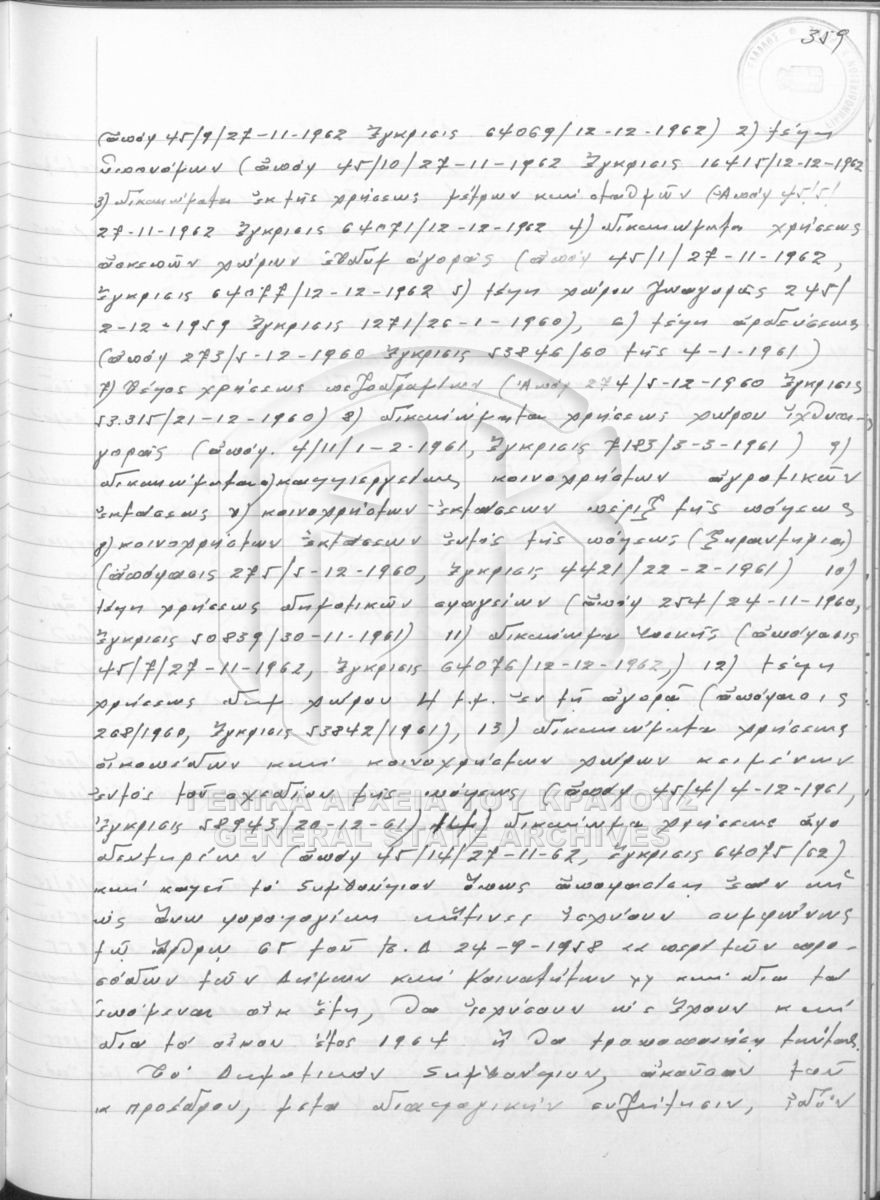 359
(ἀπόφ 45/9/27-11-1962 Ἔγκρισις 64069/12-12-1962) 2) τέλη
ὑπονόμων (ἀπόφ 45/10/27-11-1962 Ἔγκρισις 16415/12-12-1962
3) δικαιώματα ἐκ τῆς χρήσεως μέτρων καί σταθμῶν (Ἀπόφ 45/5/
27-11-1962 Ἔγκρισις 64071/12-12-1962 4) δικαιώματα χρήσεως
ἀσκεπῶν χώρων ἑβδομ ἀγορᾶς (ἀπόφ 45/1/27-11-1962,
Ἔγκρισις 64077/12-12-1962 5) τέλη χώρου ζωαγορᾶς 245/
2-12-1959 Ἔγκρισις 1271/26-1-1960), 6) τέλη ἀρδεύσεως
(ἀπόφ 273/5-12-1960 Ἔγκρισις 53846/60 τῆς 4-1-1961)
7) τέλος χρήσεως πεζοδρομίων (Ἀπόφ 274/5-12-1960 Ἔγκρισις
53.315/21-12-1960) 8) δικαιώματα χρήσεως χώρου ἰχθυα-
γορᾶς (ἀπόφ. 4/11/1-2-1961, Ἔγκρισις 7183/3-3-1961) 9)
δικαιώματα α) καλλιεργείας κοινοχρήστων ἀγροτικῶν
ἐκτάσεως γ) κοινοχρήστων ἐκτάσεων πέριξ τῆς πόλεως
β) κοινοχρήστων ἐκτάσεων ἐντός τῆς πόλεως (ξηραντήρια)
(ἀπόφασις 275/5-12-1960, Ἔγκρισις 4421/22-2-1961) 10)
τέλη χρήσεως δημοτικῶν σφαγείων (ἀπόφ 254/24-11-1960,
Ἔγκρισις 50839/30-11-1961) 11) δικαίωμα βοσκῆς (ἀπόφασις
45/7/27-11-1962, Ἔγκρισις 64076/12-12-1962,) 12) τέλη
χρήσεως δημ χώρου 4 τ.μ. ἐν τῇ ἀγορᾷ (ἀπόφασις
268/1960, Ἔγκρισις 53842/1961), 13) δικαιώματα χρήσεως
οἰκοπέδων καί κοινοχρήστων χώρων κειμένων
ἐντός τοῦ σχεδίου τῆς πόλεως (ἀπόφ 45/4/4-12-1961,
Ἔγκρισις 58943/20-12-61) 14) δικαίωμα χρήσεως
(ἀπόφ 45/14/27-11-62, ἔγκρισις 64075/62)
καί καλεῖ τό Συμβούλιον ὅπως ἀποφασίσῃ ἐάν αἱ
ὡς ἄνω φορολογίαι αἵτινες ἰσχύουν συμφώνως
τῷ ἄρθρῳ 65 τοῦ Β.Δ 24-9-1958 << περί τῶν προ-
σόδων τῶν Δήμων καί Κοινοτήτων >> καί διά τά
ἑπόμενα οἰκ ἔτη, θα ἰσχύσουν ὡς ἔχουν καί
διά τό οἰκον ἔτος 1964 ἤ θα τροποποιήσῃ ταύτας.
Τό Δημοτικόν Συμβούλιον, ἀκοῦσαν τοῦ
κ προέδρου, μετά διαλογικήν συζήτησιν, ἰδόν
ΓΕΝΙΚΑ ΑΡΧΕΙΑ ΤΟΥ ΚΡΑΤΟΥΣ
GENERAL STATE ARCHIVES